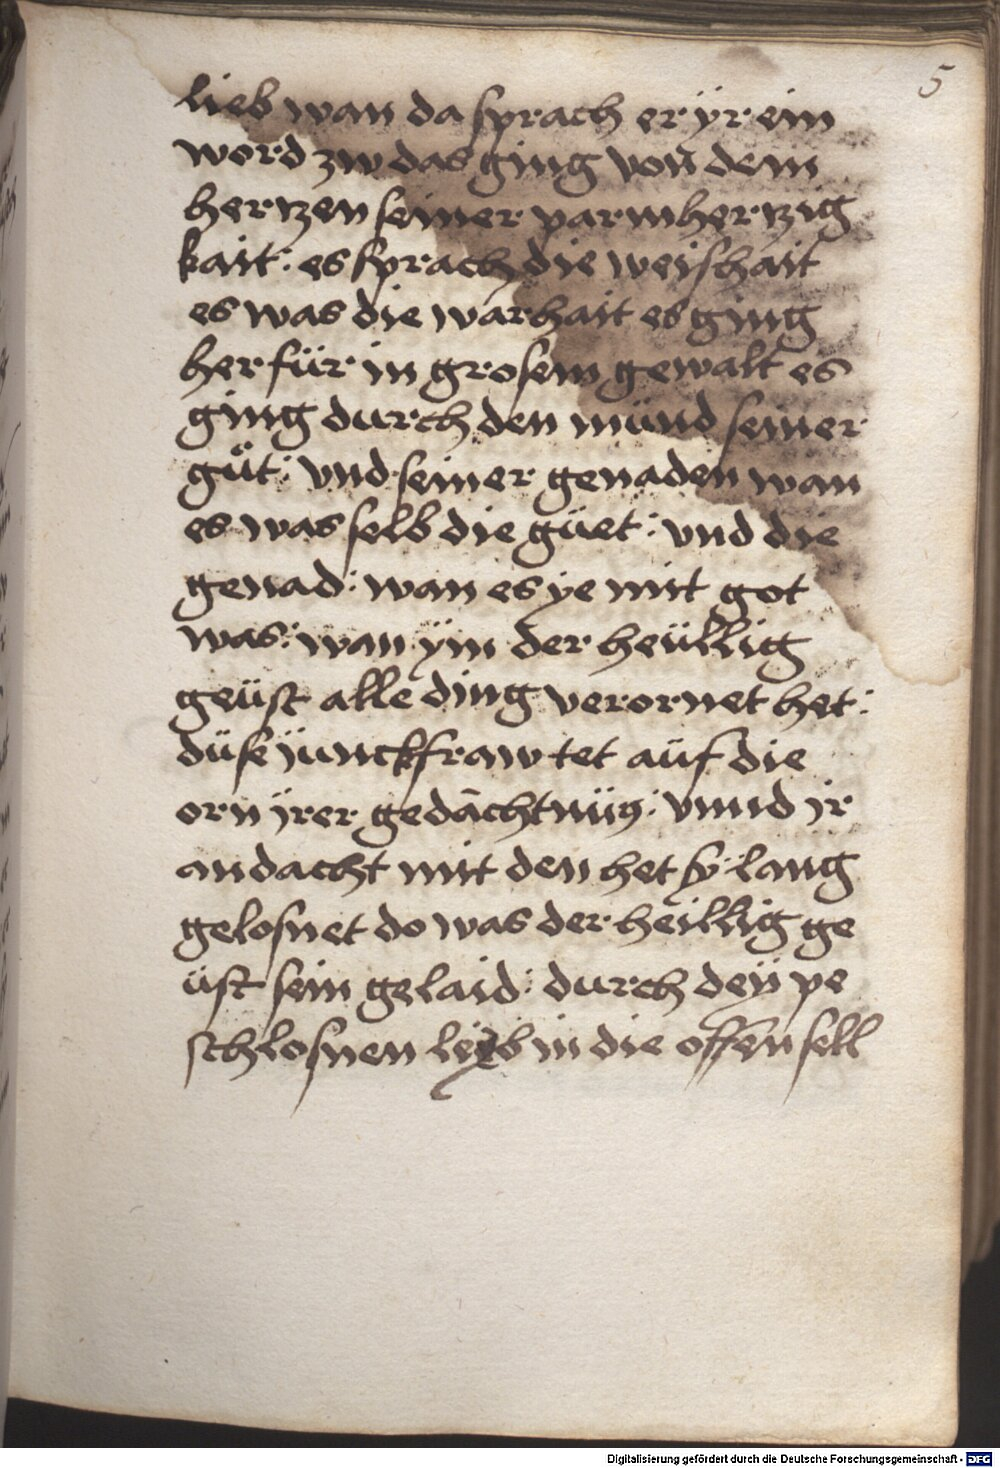 5
lieb wan da sprach er ÿr ein
word zw das ging von dem
hertzen seiner parmhertzig
kait : es sprach die weishait
es was die warhait es ging
herfür in grosem gewalt es
ging durch den münd seiner
gůt : vnd seiner genaden wan
es was selb die güet : vnd die
genad : wan es ye mit got
was : wan ÿm der heüllig
geüst alle ding verornet het :
düse jünckfraw tet aüf die
orn jrer gedächtnüs : vnnd jr
andacht mit den het sÿ lang
gelosnet do was der heillig ge
üst sein gelaid : durch deÿ pe
schlosnen leyb in die offen sell
Digitalisierung gefördert durch die Deutsche Forschungsgemeinschaft - DFG